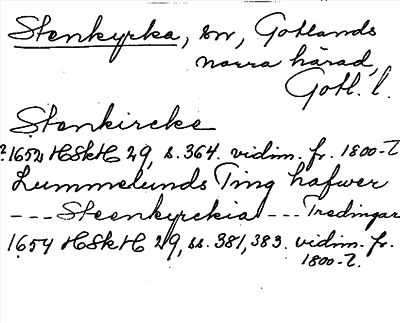 Stenkyrka, sn, Gotlands
norra härad,
Gotl. l.
Stenkircke
?1652 HSkH 29, s. 364. vidim. fr. 1800-t.
Lummelunds Ting hafwer
--- Steenkyrckia --- Tredingar
1654 HSkH 29, ss. 381, 383. vidim. fr.
1800-t.